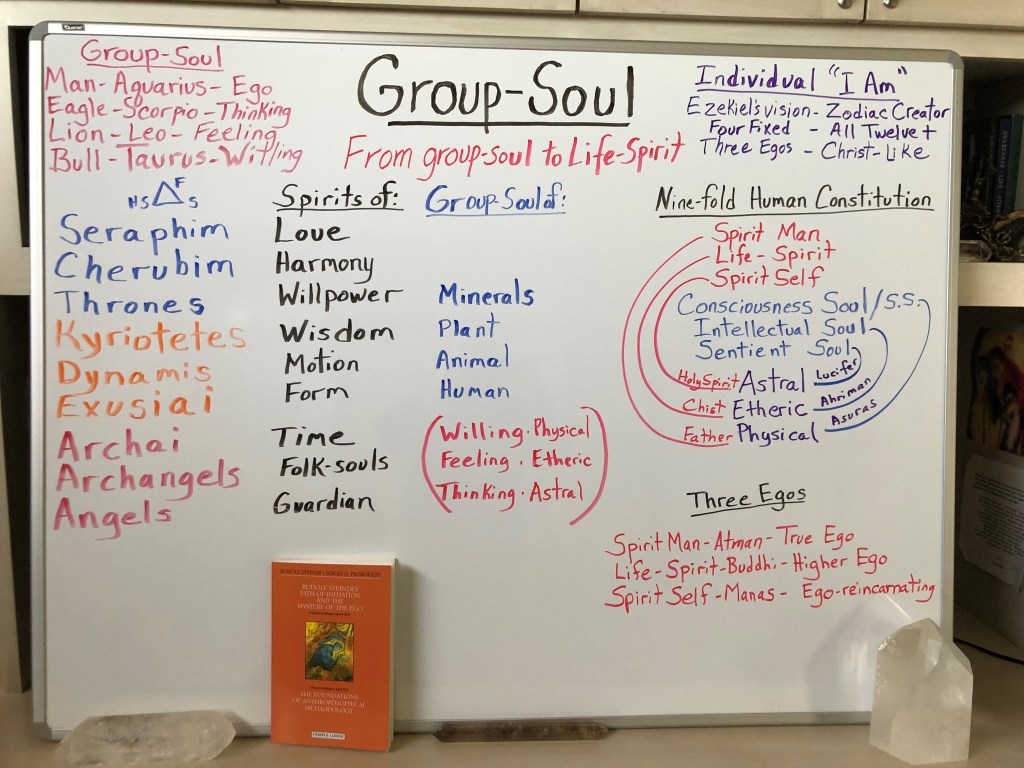 Group-Soul
Man-Aquarius-Ego
Eagle-Scorpio-Thinking
Lion-Leo-Feeling
Bull-Taurus-Willing
Group-Soul
From group-soul to Life-Spirit
Individual "I Am"
Ezekiel's vision-Zodiac Creator
Four Fixed - All Twelve+
Three Egos - Christ-Like
F
HS S
Seraphim
Cherubim
Thrones
Kyriotetes
Dynamis
Exusiai
Archai
Archangels
Angels
Spirits of:
Love
Harmony
Willpower
Wisdom
Motion
Form
Time
Folk-souls
Guardian
Group-Soul of:
Minerals
Plant
Animal
Human
Willing · Physical
Feeling · Etheric
Thinking · Astral
Nine-fold Human Constitution
Spirit Man
Life-Spirit
Spirit Self
Consciousness Soul/S.S.
Intellectual Soul
Sentient Soul
Holy Spirit Astral Lucifer
Chist Etheric Ahriman
Father Physical Asuras
Three Egos
Spirit Man-Atman-True Ego
Life-Spirit-Buddhi-Higher Ego
Spirit Self-Manas-Ego-reincarnating
RUDOLF STEINER'S
PATH OF INITIATION
AND THE
MYSTERY OF THE EGO
THE FOUNDATIONS
OF ANTHROPOSOPHICAL
METHODOLOGY
TEMPLE LODGE